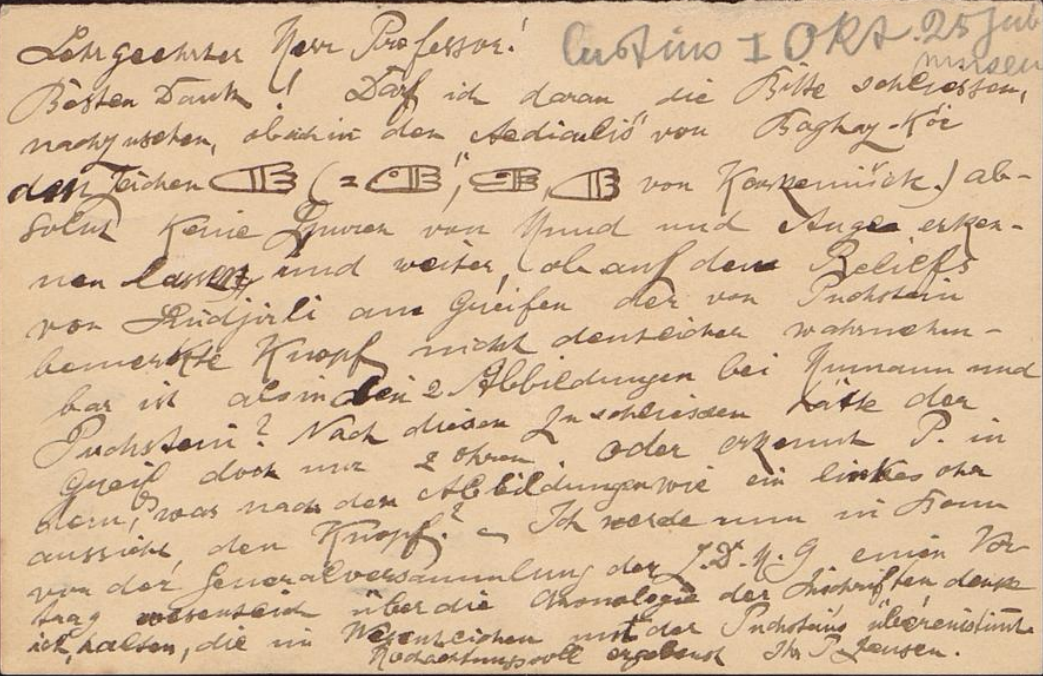 Sehrgeehrter Herr Professor!
I OKt. 25 Jub
Besten Dank! Darf ich daran die Bitte schliessen,
nachzusehen, ob sich in den „Aediculis“ von Boghaz-Köi
dem Zeichen (= , , von ) ab-
solut keine Spuren von Mund und Auge erken-
nen lassen, und weiter, ob auf dem Reliefs
von Sindjirli am Greifen der von Puchstein
bemerkte Knopf nicht deutlicher wahrnehm-
bar ist als in den 2 Abbildungen bei Humann und
Puchstein? Nach diesen zu schliessen hätte der
Greif doch nur 2 Ohren. Oder erkennt P. in
dem, was nach den Abbildungen wie ein linkes Ohr
aussieht, den Knopf? – Ich werde nun in
von der Generalversammlung der D. M. G einen Vor-
trag wesentlich über die Chronologie der Inschriften denke
ich, halten, die im Wesentlichen mit der Puchsteins übereinstimmt.
Hochachtungsvoll ergebenst Ihr P. Jensen.